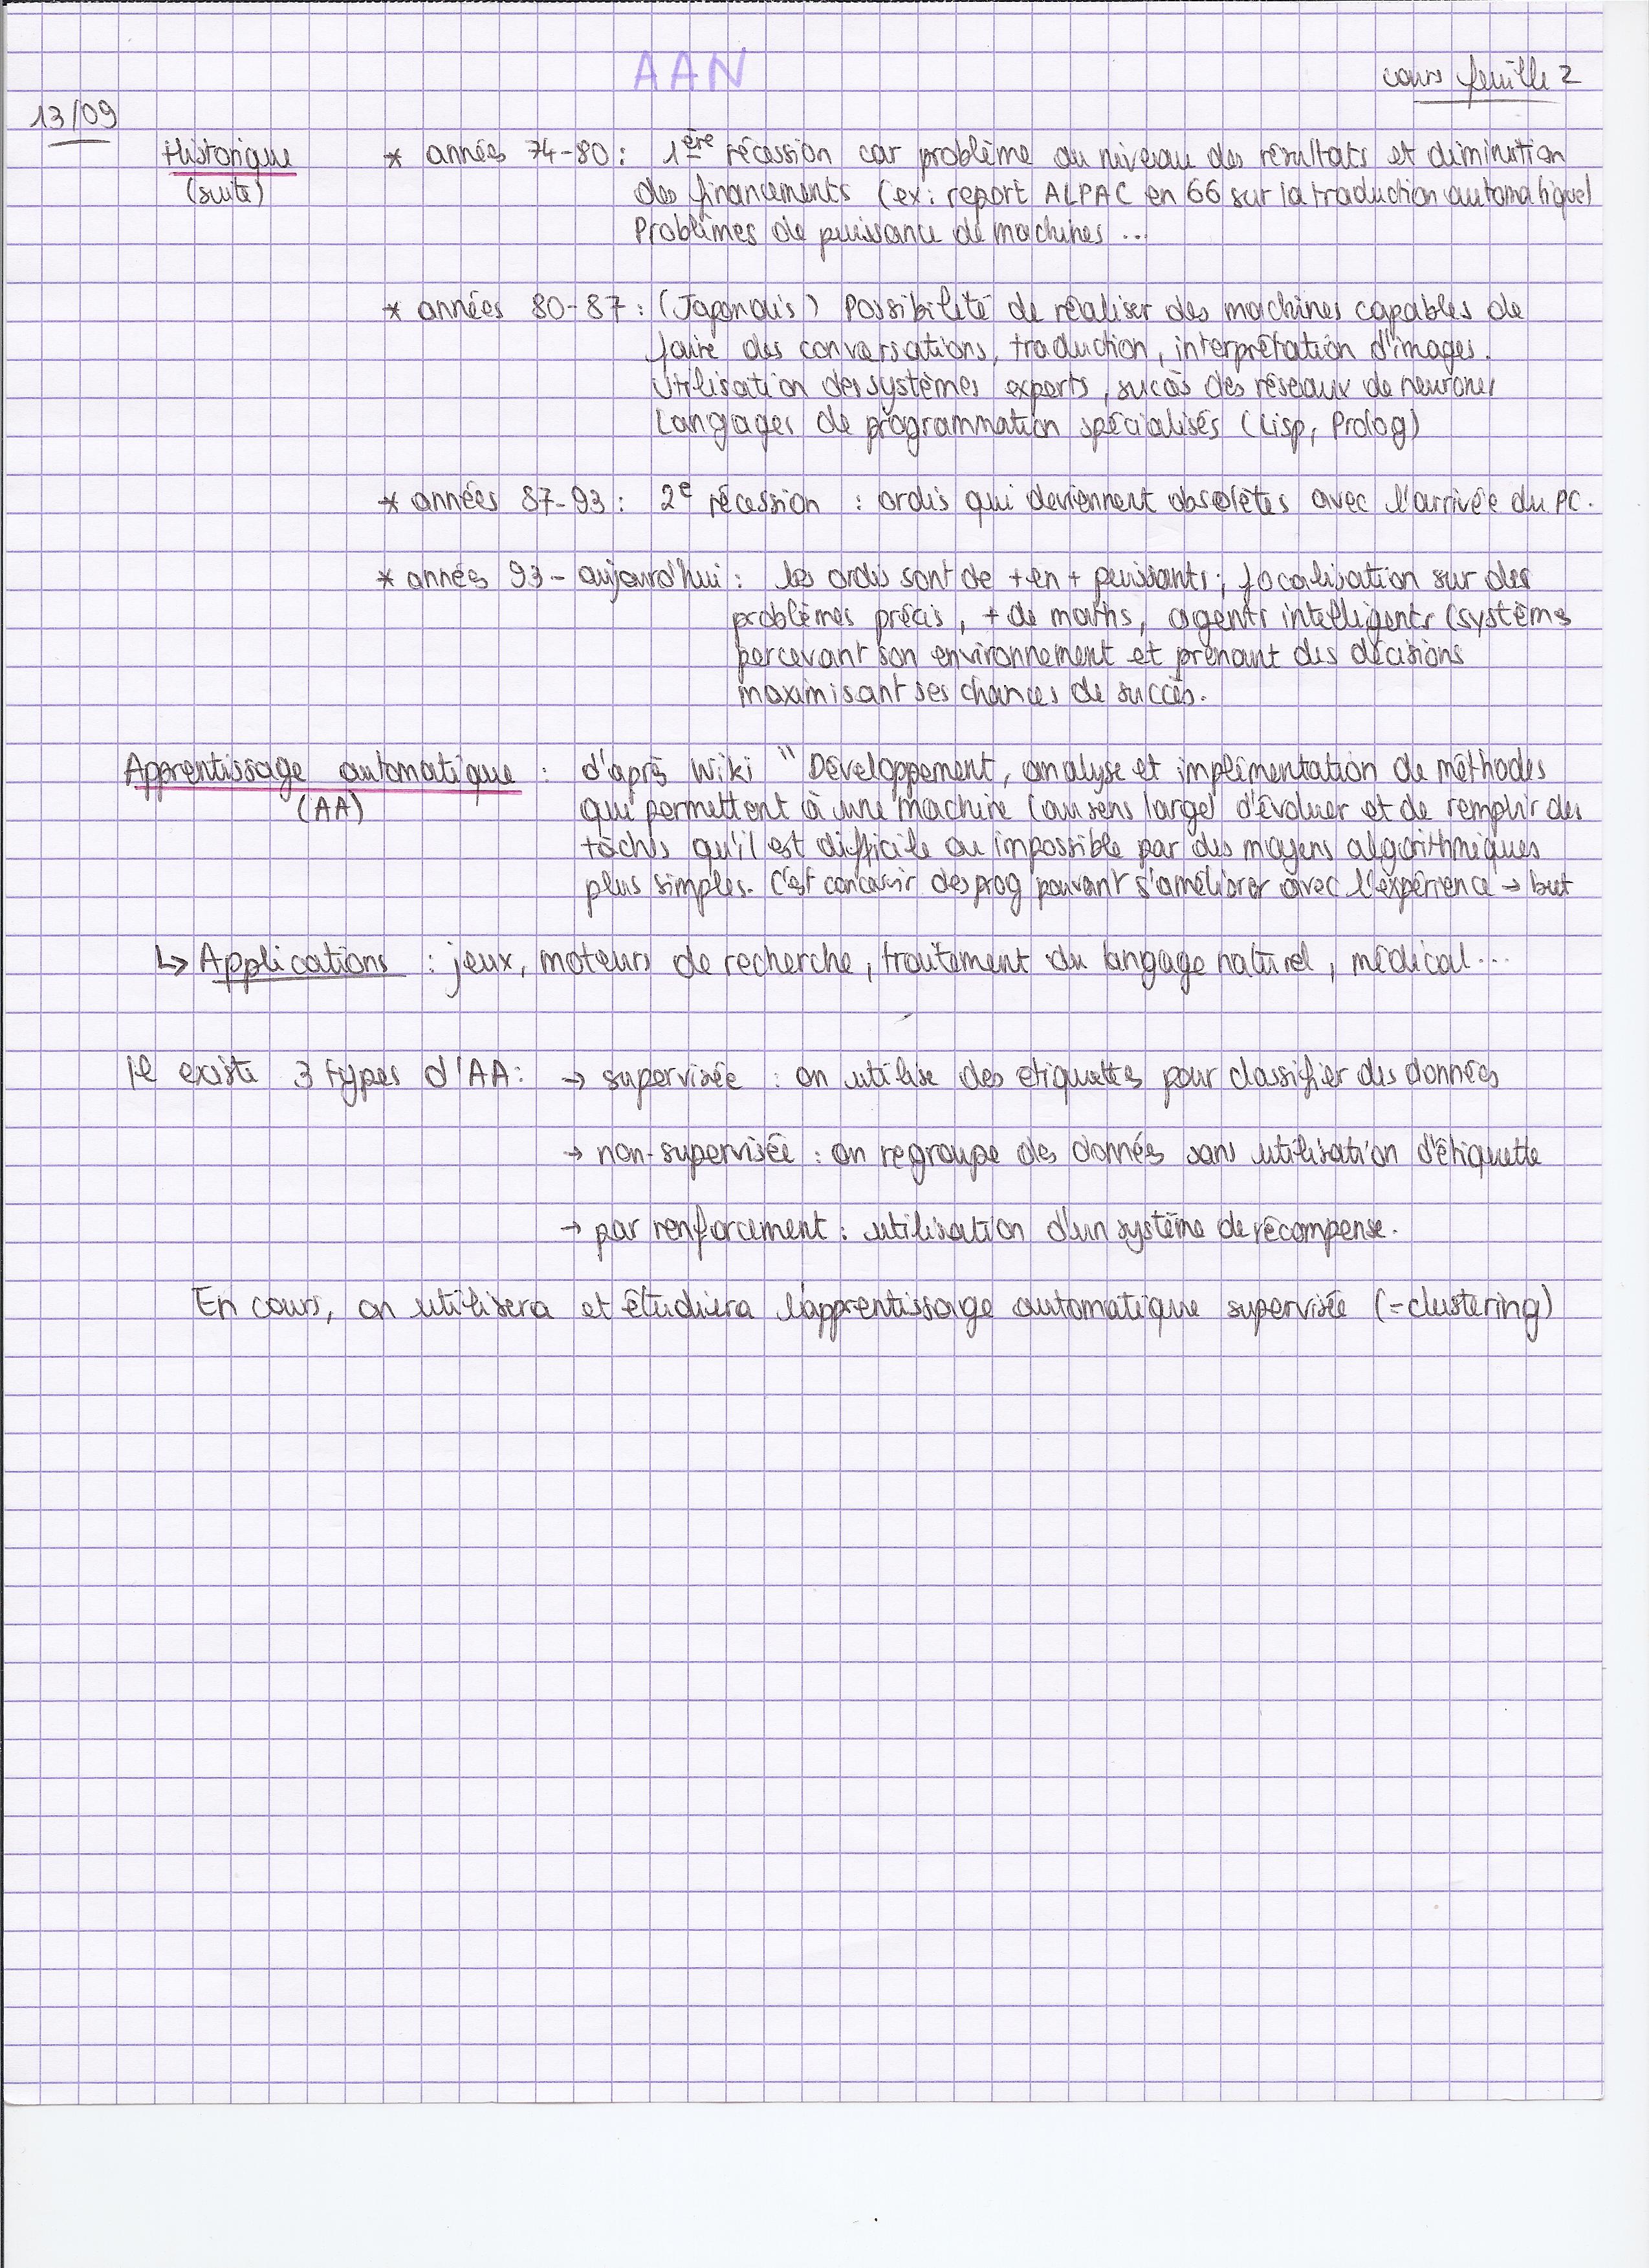 AAN
cours feuille 2
13/09
Historique * années 74-80 : 1ère récession car problème au niveau des résultats et diminution
(suite) des financements (ex: report ALPAC en 66 sur la traduction automatique)
Problèmes de puissance de machines ...
* années 80-87 : (Japonais) Possibilité de réaliser des machines capables de
faire des conversations, traduction, interprétation d'images.
Utilisation des systèmes experts, succès des réseaux de neurones
Langages de programmation spécialisés (Lisp, Prolog)
* années 87-93 : 2e récession : ordis qui deviennent obsolètes avec l'arrivée du PC.
* années 93 - aujourd'hui : les ordis sont de + en + puissants ; focalisation sur des
problèmes précis, + de maths, agents intelligents (système
percevant son environnement et prenant des décisions
maximisant ses chances de succès.
Apprentissage automatique : d'après Wiki " Développement, analyse et implémentation de méthodes
(AA) qui permettent à une machine (au sens large) d'évoluer et de remplir des
tâches qu'il est difficile ou impossible par des moyens algorithmiques
plus simples. C'est concevoir des prog pouvant s'améliorer avec l'expérience → but
↳ Applications : jeux, moteurs de recherche, traitement du langage naturel, médical ...
Il existe 3 types d'AA : → supervisée : on utilise des étiquettes pour classifier des données
→ non-supervisée : on regroupe des données sans utilisation d'étiquette
→ par renforcement : utilisation d'un système de récompense.
En cours, on utilisera et étudiera l'apprentissage automatique supervisée (=clustering)